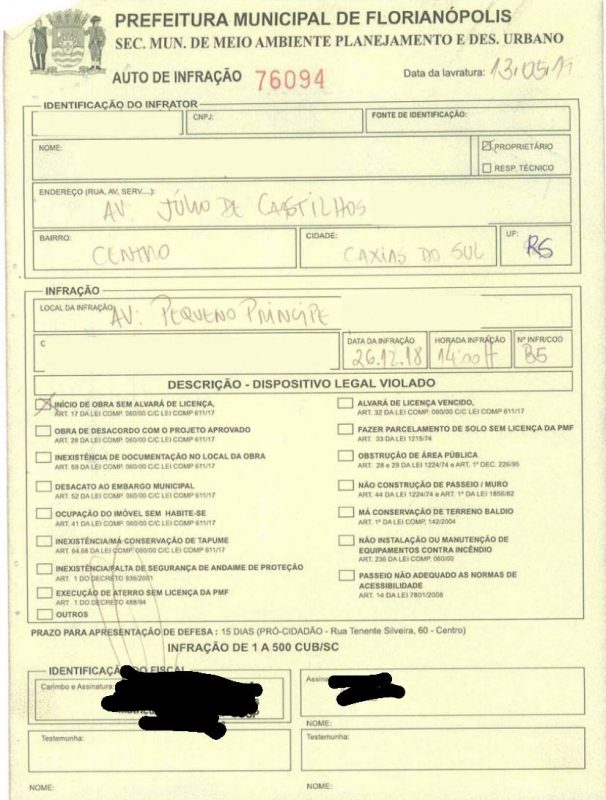 PREFEITURA MUNICIPAL DE FLORIANÓPOLIS
SEC. MUN. DE MEIO AMBIENTE PLANEJAMENTO E DES. URBANO
AUTO DE INFRAÇÃO 76094 Data da lavratura: 13.05.19
IDENTIFICAÇÃO DO INFRATOR
CNPJ: FONTE DE IDENTIFICAÇÃO:
NOME: PROPRIETÁRIO
RESP. TÉCNICO
ENDEREÇO (RUA, AV, SERV....):
AV. JÚLIO DE CASTILHOS
BAIRRO: CIDADE: UF:
CENTRO CAXIAS DO SUL RS
INFRAÇÃO
LOCAL DA INFRAÇÃO:
AV: PEQUENO PRINCIPE
C DATA DA INFRAÇÃO HORADA INFRAÇÃO Nº INFR/COD
26.12.18 14:00H B5
DESCRIÇÃO - DISPOSITIVO LEGAL VIOLADO
INÍCIO DE OBRA SEM ALVARÁ DE LICENÇA, ALVARÁ DE LICENÇA VENCIDO,
ART. 17 DA LEI COMP. 060/00 C/C LEI COMP 611/17 ART. 32 DA LEI COMP. 060/00 C/C LEI COMP 611/17
OBRA DE DESACORDO COM O PROJETO APROVADO FAZER PARCELAMENTO DE SOLO SEM LICENÇA DA PMF
ART. 28 DA LEI COMP. 060/00 C/C LEI COMP 611/17 ART. 33 DA LEI 1215/74
INEXISTÊNCIA DE DOCUMENTAÇÃO NO LOCAL DA OBRA OBSTRUÇÃO DE ÁREA PÚBLICA
ART. 59 DA LEI COMP. 060/00 C/C LEI COMP 611/17 ART. 28 e 29 DA LEI 1224/74 e ART. 1º DEC. 226/95
DESACATO AO EMBARGO MUNICIPAL NÃO CONSTRUÇÃO DE PASSEIO / MURO
ART. 52 DA LEI COMP. 060/00 C/C LEI COMP 611/17 ART. 44 DA LEI 1224/74 e ART. 1º DA LEI 1856/82
OCUPAÇÃO DO IMÓVEL SEM HABITE-SE MÁ CONSERVAÇÃO DE TERRENO BALDIO
ART. 41 DA LEI COMP. 060/00 C/C LEI COMP 611/17 ART. 1º DA LEI COMP. 142/2004
INEXISTÊNCIA/MÁ CONSERVAÇÃO DE TAPUME NÃO INSTALAÇÃO OU MANUTENÇÃO DE
ART. 64.68 DA LEI COMP. 060/00 C/C LEI COMP 611/17 EQUIPAMENTOS CONTRA INCÊNDIO
ART. 236 DA LEI COMP. 060/00
INEXISTÊNCIA/FALTA DE SEGURANÇA DE ANDAIME DE PROTEÇÃO PASSEIO NÃO ADEQUADO AS NORMAS DE
ART. 1 DO DECRETO 936/2001 ACESSIBILIDADE
EXECUÇÃO DE ATERRO SEM LICENÇA DA PMF ART. 14 DA LEI 7801/2008
ART. 1 DO DECRETO 488/94
OUTROS
PRAZO PARA APRESENTAÇÃO DE DEFESA : 15 DIAS (PRÓ-CIDADÃO - Rua Tenente Silveira, 60 - Centro)
INFRAÇÃO DE 1 A 500 CUB/SC
IDENTIFICAÇÃO DO FISCAL
Carimbo e Assinatura:
NOME:
Testemunha: Testemunha:
NOME: NOME: